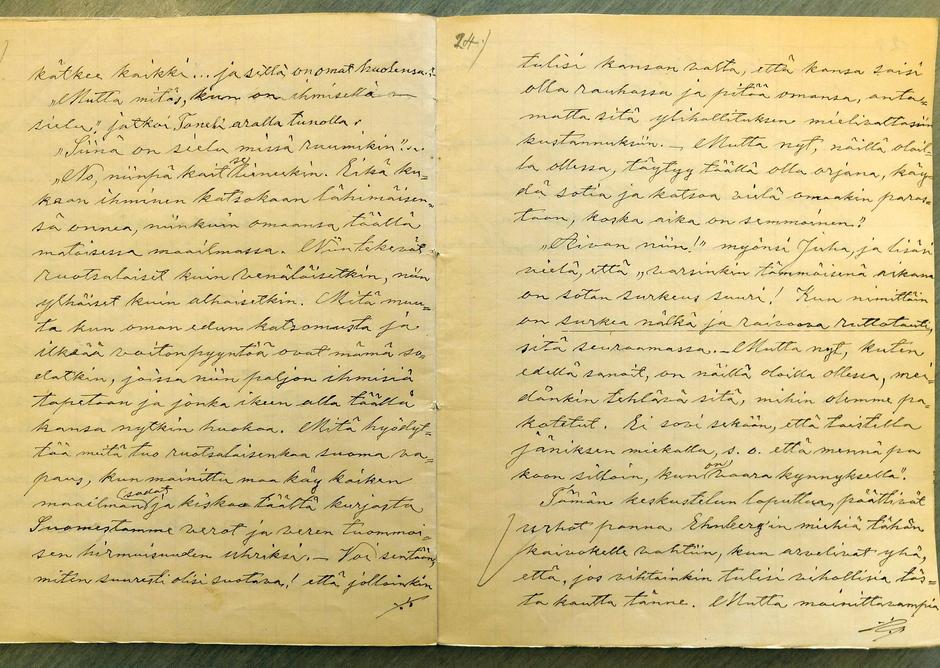 kätkee kaikki... ja sillä on omat huolensa."
"Mutta mitäs, kun on ihmisellä —
sielu", jatkoi Taneli aralla tunnolla.
"Siinä on sielu missä ruumiikin"...
"No, niinpä kait sy kiinneekin. Eikä ku=
kaan ihminen katsokaan lähimäisen=
sä onnea, niinkuin omaansa täällä
matoisessa maailmassa. Niin tekevät
ruotsalaiset kuin venäläisetkin, niin
ylhäiset kuin alhaisetkin. Mitä muu=
ta kun oman edun katsomusta ja
ilkeää voitonpyyntöä ovat nämä so=
datkin, joissa niin paljon ihmisiä
tapetaan ja jonka ikeen alla täällä
kansa nytkin huokaa. Mitä hyödyt=
tää meitä tuo ruotsalaisenkaa suoma va=
paus, kun mainittu maa käy kaiken
maailman sodat ja kiskoo täältä kurjasta
Suomestamme verot ja veren tuommoi=
sen hirmuisuuden uhriksi. — Voi sentään
miten suuresti olisi suotava! että jolloinkin
24./
tulisi kansan valta, että kansa saisi
olla rauhassa ja pitää omansa, anta=
matta sitä ylihallituksen mielivaltaisiin
kustannuksiin. — Mutta nyt, näillä oloil=
la ollessa, täytyy täällä olla orjana, käy=
dä sotia ja katsoa vielä omaakin paras=
taan, koska aika on semmoinen."
"Aivan niin!" myönsi Juha, ja lisäsi
vielä, että "varsinkin tämmöisenä aikana
on sotan surkeus suuri! Kun nimittäin
on surkea nälkä ja raivoova ruttotauti,
sitä seuraamassa. — Mutta nyt, kuten
edellä sanoit, on näillä oloilla ollessa, mei=
dänkin tehtävä sitä, mihin olemme pa=
kotetut. Ei sovi sekään, että taistella
jäniksen miekalla, s. o. että mennä pa=
koon silloin, kun on vaara kynnyksellä".
Tämän keskustelun loputtua, päättivät
urhot panna Ehnberg'in miehiä tähän
kaivokelle vahtiin, kun arvelivat yhä,
että, jos vihtainkin tulisi vihollisia täs=
tä kautta tänne. Mutta mainittavampia